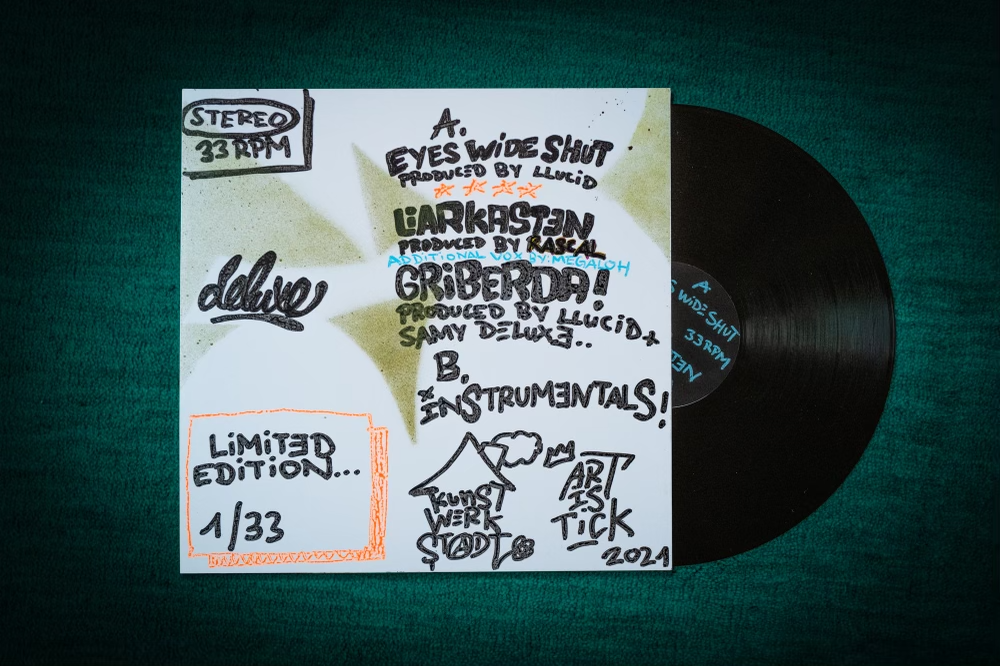 STEREO
33 RPM
A.
EYES WiDE SHUT
PRODUCED BY LLUCiD
LiARKASTEN
PRODUCED BY RASCAL
ADDiTiONAL VOX BY: MEGALOH
GRiBERDA!
PRODUCED BY LLUCiD +
SAMY DELUXE..
B.
iNSTRUMENTALS!
deluxe
LiMiTED
EDiTiON...
1/33
KUNST
WERK
STADT
ART
IS
TiCK
2021
A
WiDE SHUT
33 RPM
TEN